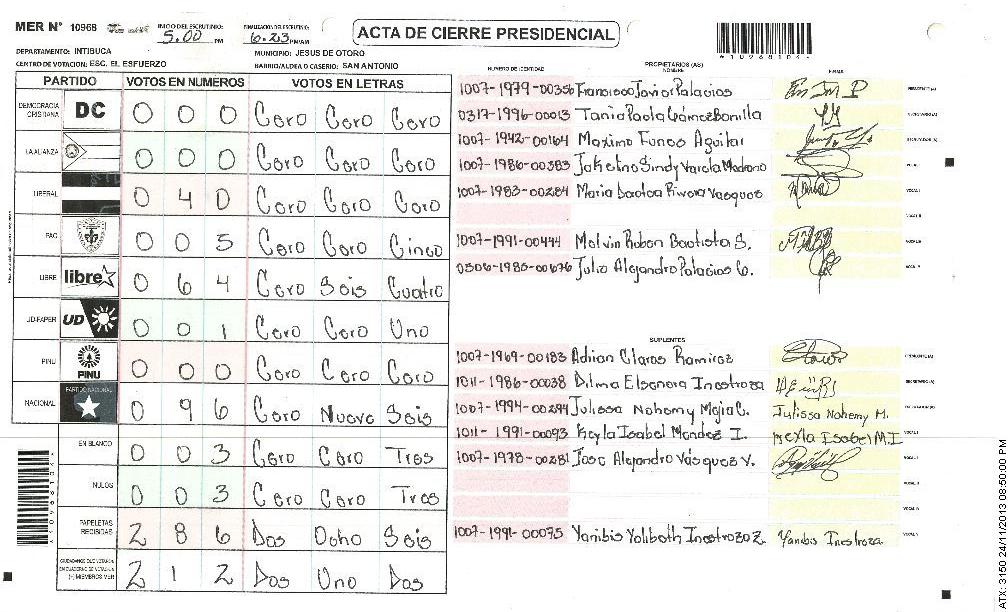 MER N° 10968 INICIO DEL ESCRUTINIO: 5.00 PM FINALIZACION DEL ESCRUTINIO: 6.23 PM/AM ACTA DE CIERRE PRESIDENCIAL *10968104*
DEPARTAMENTO: INTIBUCA MUNICIPIO: JESUS DE OTORO
CENTRO DE VOTACION: ESC. EL ESFUERZO BARRIO/ALDEA O CASERIO: SAN ANTONIO
PARTIDO VOTOS EN NUMEROS VOTOS EN LETRAS
DEMOCRACIA CRISTIANA DC 0 0 0 Cero Cero Cero
LA ALIANZA 0 0 0 Cero Cero Cero
LIBERAL 0 4 0 Cero Cero Cero
PAC 0 0 5 Cero Cero Cinco
LIBRE libre 0 6 4 Cero Seis Cuatro
UD-FAPER UD 0 0 1 Cero Cero Uno
PINU PINU 0 0 0 Cero Cero Cero
NACIONAL PARTIDO NACIONAL 0 9 6 Cero Nueve Seis
EN BLANCO 0 0 3 Cero Cero Tres
NULOS 0 0 3 Cero Cero Tres
PAPELETAS RECIBIDAS 2 8 6 Dos Ocho Seis
CIUDADANOS QUE VOTARON EN CUADERNO DE VOTACION (+) MIEMBROS MER 2 1 2 Dos Uno Dos
NUMERO DE IDENTIDAD PROPIETARIOS (AS) NOMBRE FIRMA
1007-1979-00356 Francisco Javier Palacios PRESIDENTE(A)
0317-1996-00013 Tania Paola Gámez Bonilla
1007-1942-00164 Maximo Funes Aguilar
1007-1986-00383 Jakeline Sindy Varela Medrano VOCAL I
1007-1983-00284 Maria Rivera Vasquez VOCAL II
VOCAL II
1007-1991-00444 Melvin Ruben Bautista S.
0506-1985-00676 Julio Alejandro Palacios G. VOCAL V
SUPLENTES
1007-1969-00183 Adrian Claros Ramirez PRESIDENTE(A)
1011-1986-00038 Dilma Eleonora Inestroza SECRETARIO(A)
1007-1994-00294 Julissa Nohemy Mejia C. Julissa Nohemy M.
1011-1991-00093 Keyla Isabel Mendez I. Keyla Isabel M.I VOCAL I
1007-1978-00281 Jose Alejandro Vásquez V.
VOCAL IV
1007-1991-00075 Yanibis Yolibeth Inestroza Z. Yanibis Inestroza VOCAL V
*10968104*
ATX: 3150 24/11/2013 08:50:00 PM